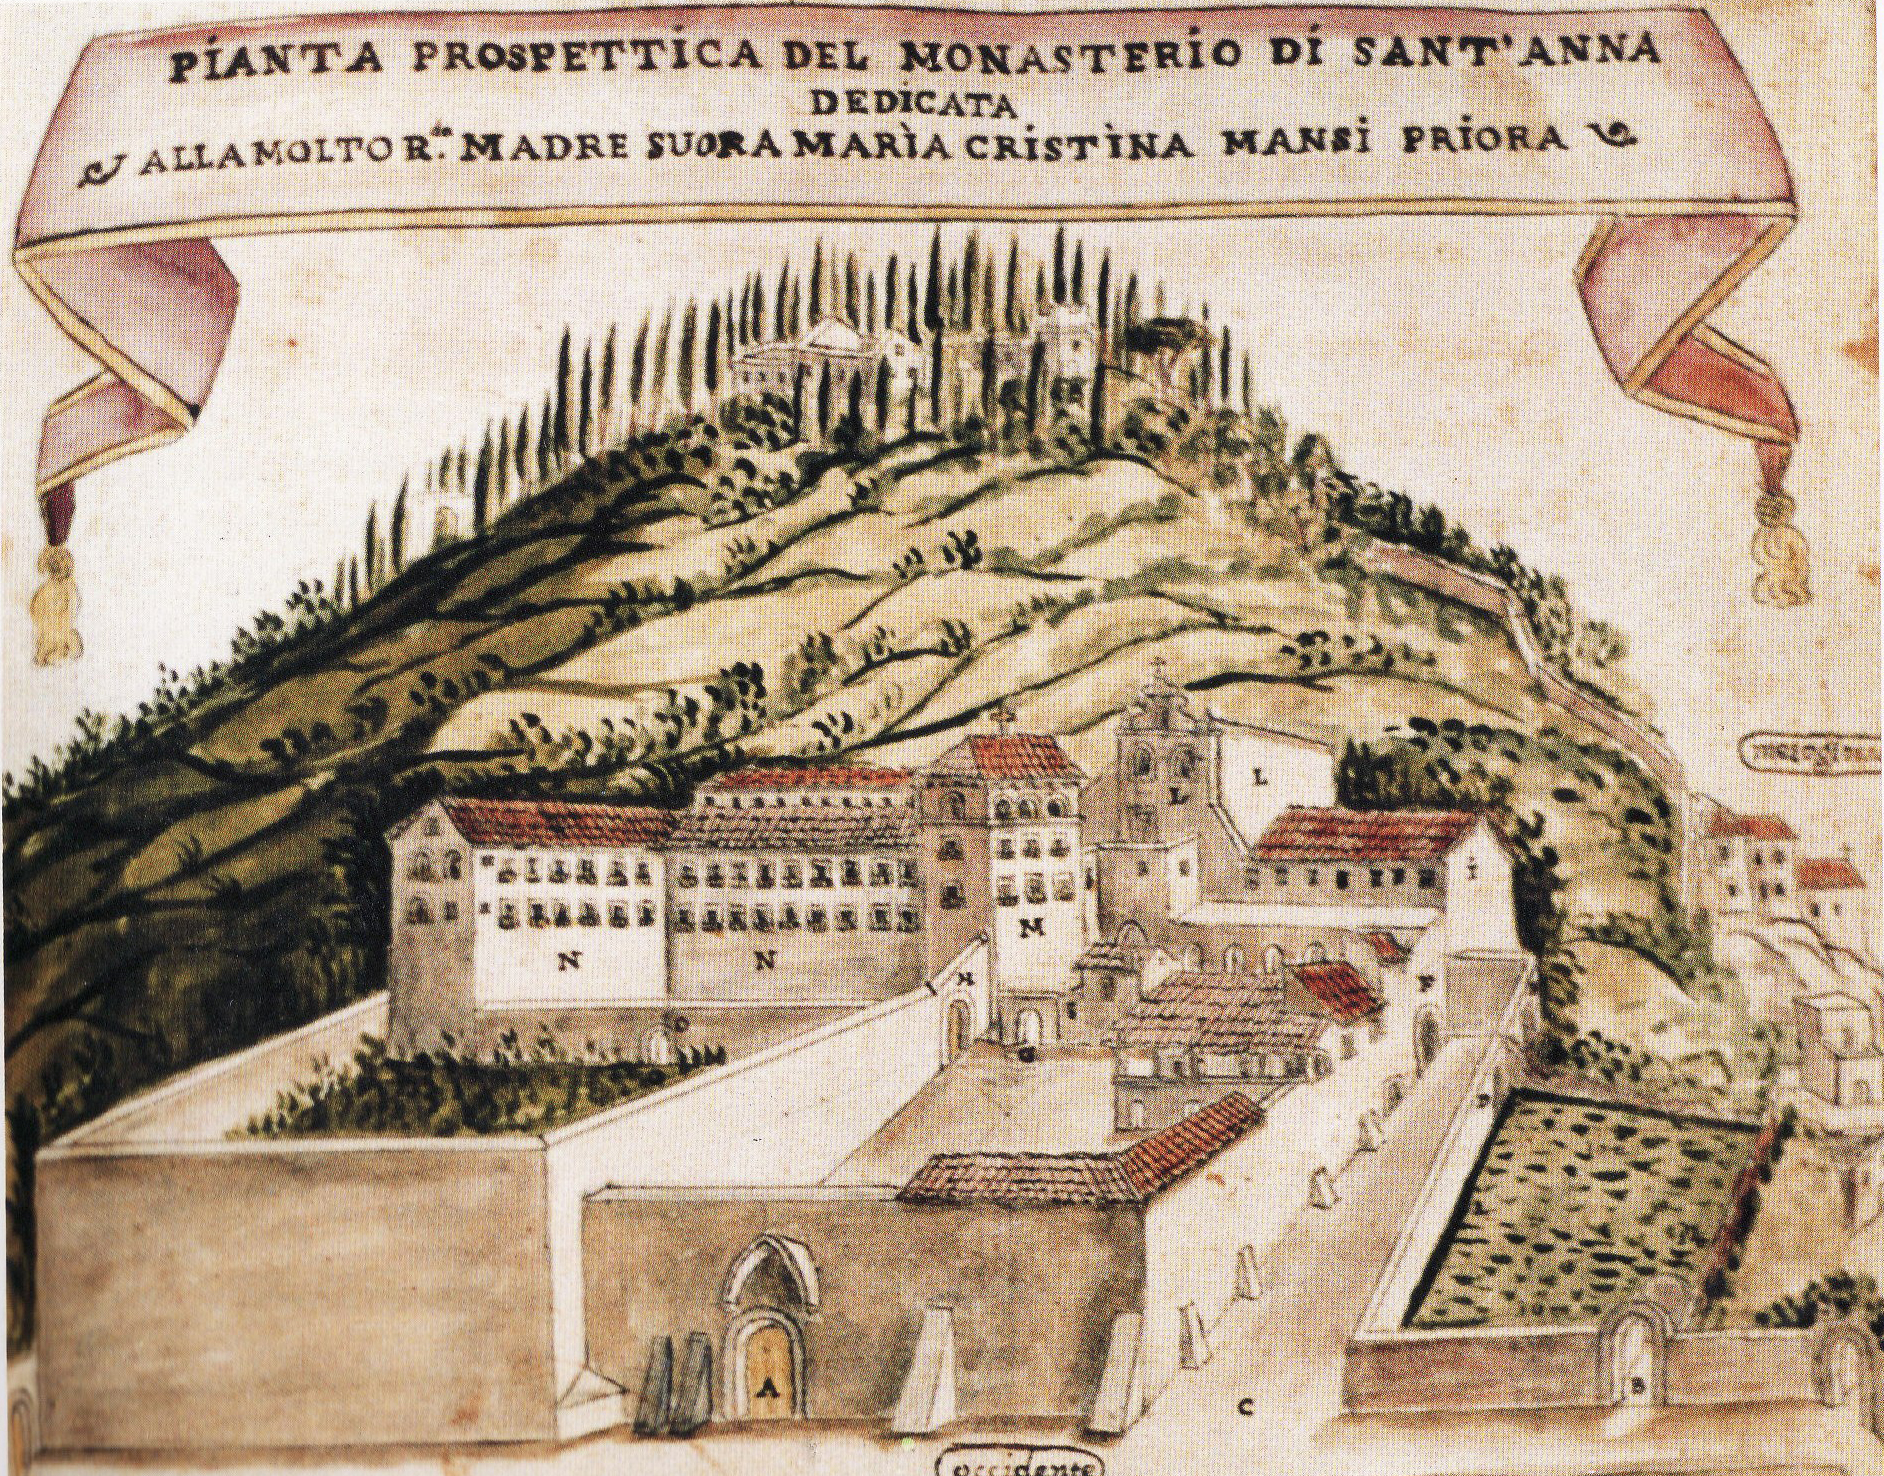 PIANTA PROSPETTICA DEL MONASTERIO DI SANT'ANNA
DEDICATA
ALLA MOLTO R.da MADRE SUORA MARÌA CRISTÌNA MANSI PRIORA
L
L
i
M
N
N
H
F
G
D
A
B
C
occidente